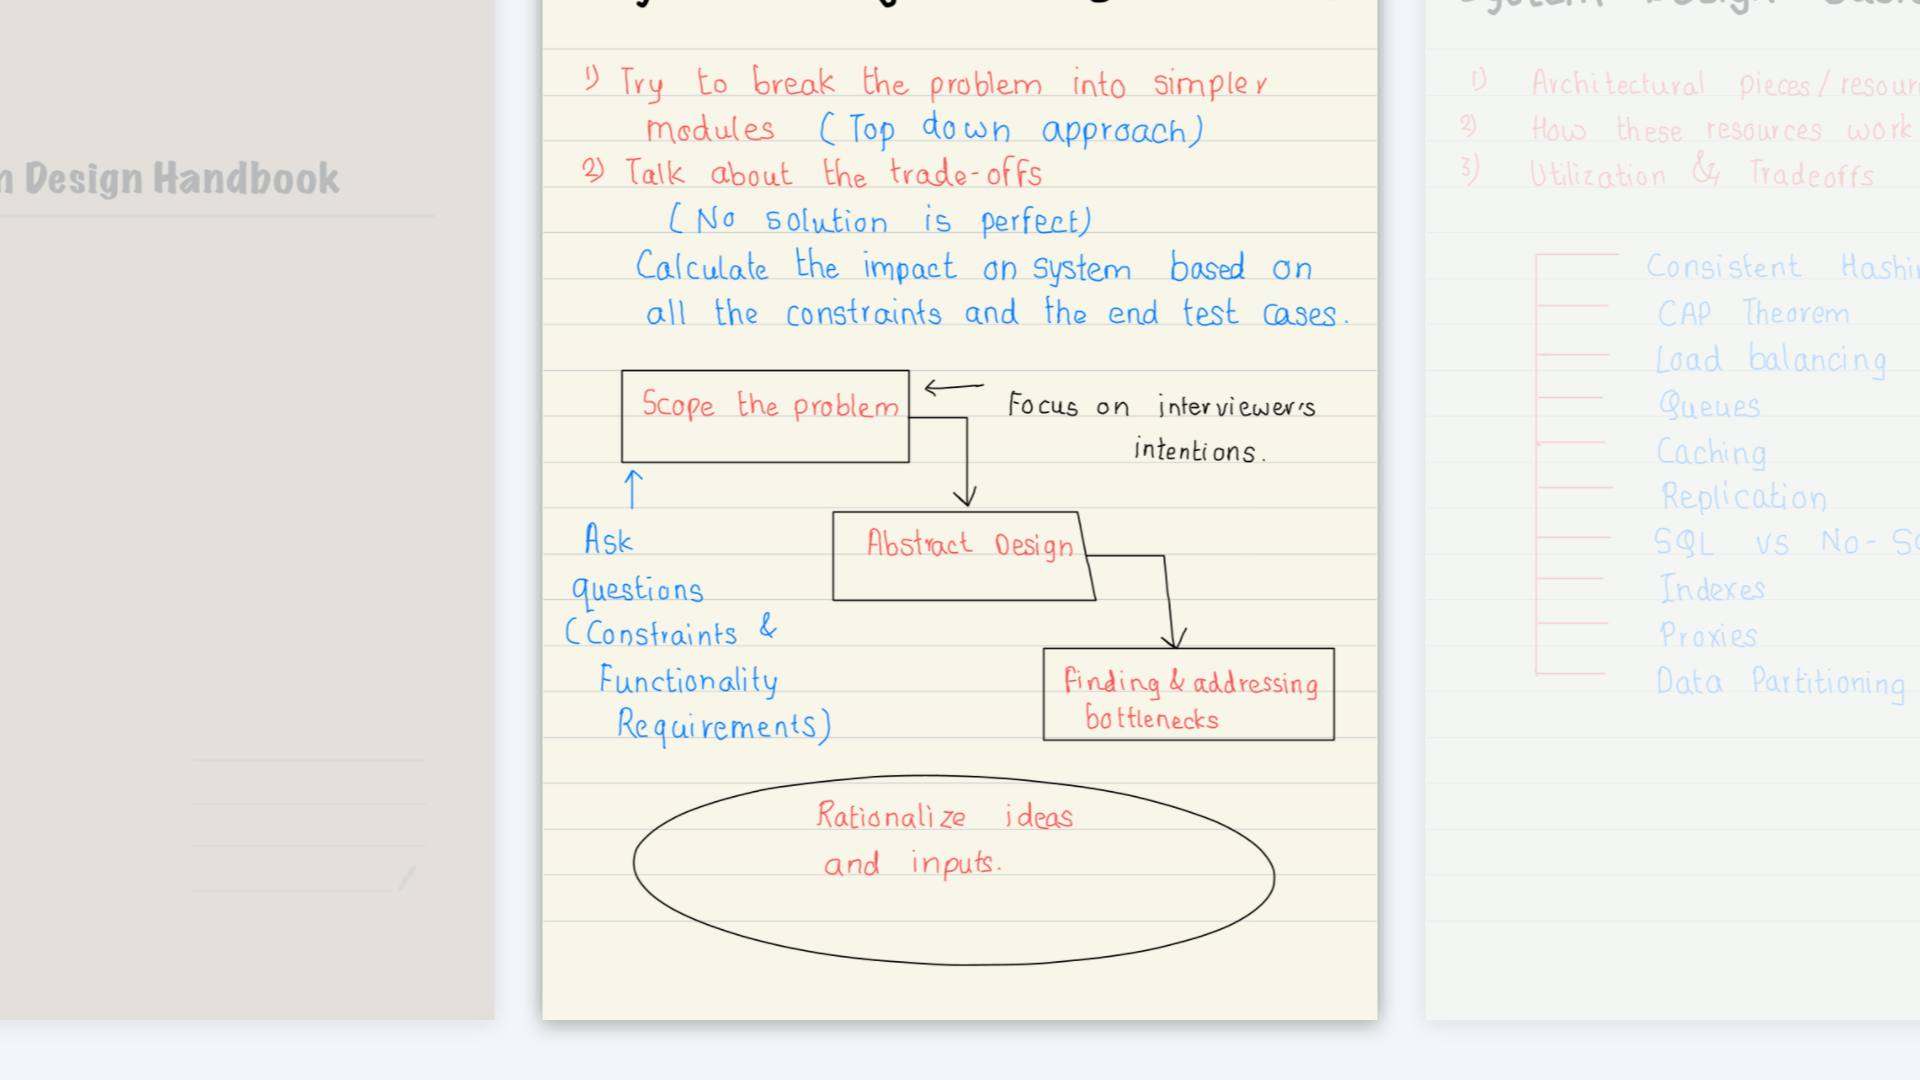 Design Handbook
1) Try to break the problem into simpler
modules (Top down approach)
2) Talk about the trade-offs
(No solution is perfect)
Calculate the impact on system based on
all the constraints and the end test cases.
Scope the problem
Focus on interviewer's
intentions.
Ask
questions
(Constraints &
Functionality
Requirements)
Abstract Design
Finding & addressing
bottlenecks
Rationalize ideas
and inputs.
System Design
1) Architectural pieces/
2) How these resources work
3) Utilization & Tradeoffs
Consistent
CAP Theorem
Load balancing
Queues
Caching
Replication
SQL vs No-
Indexes
Proxies
Data Partitioning